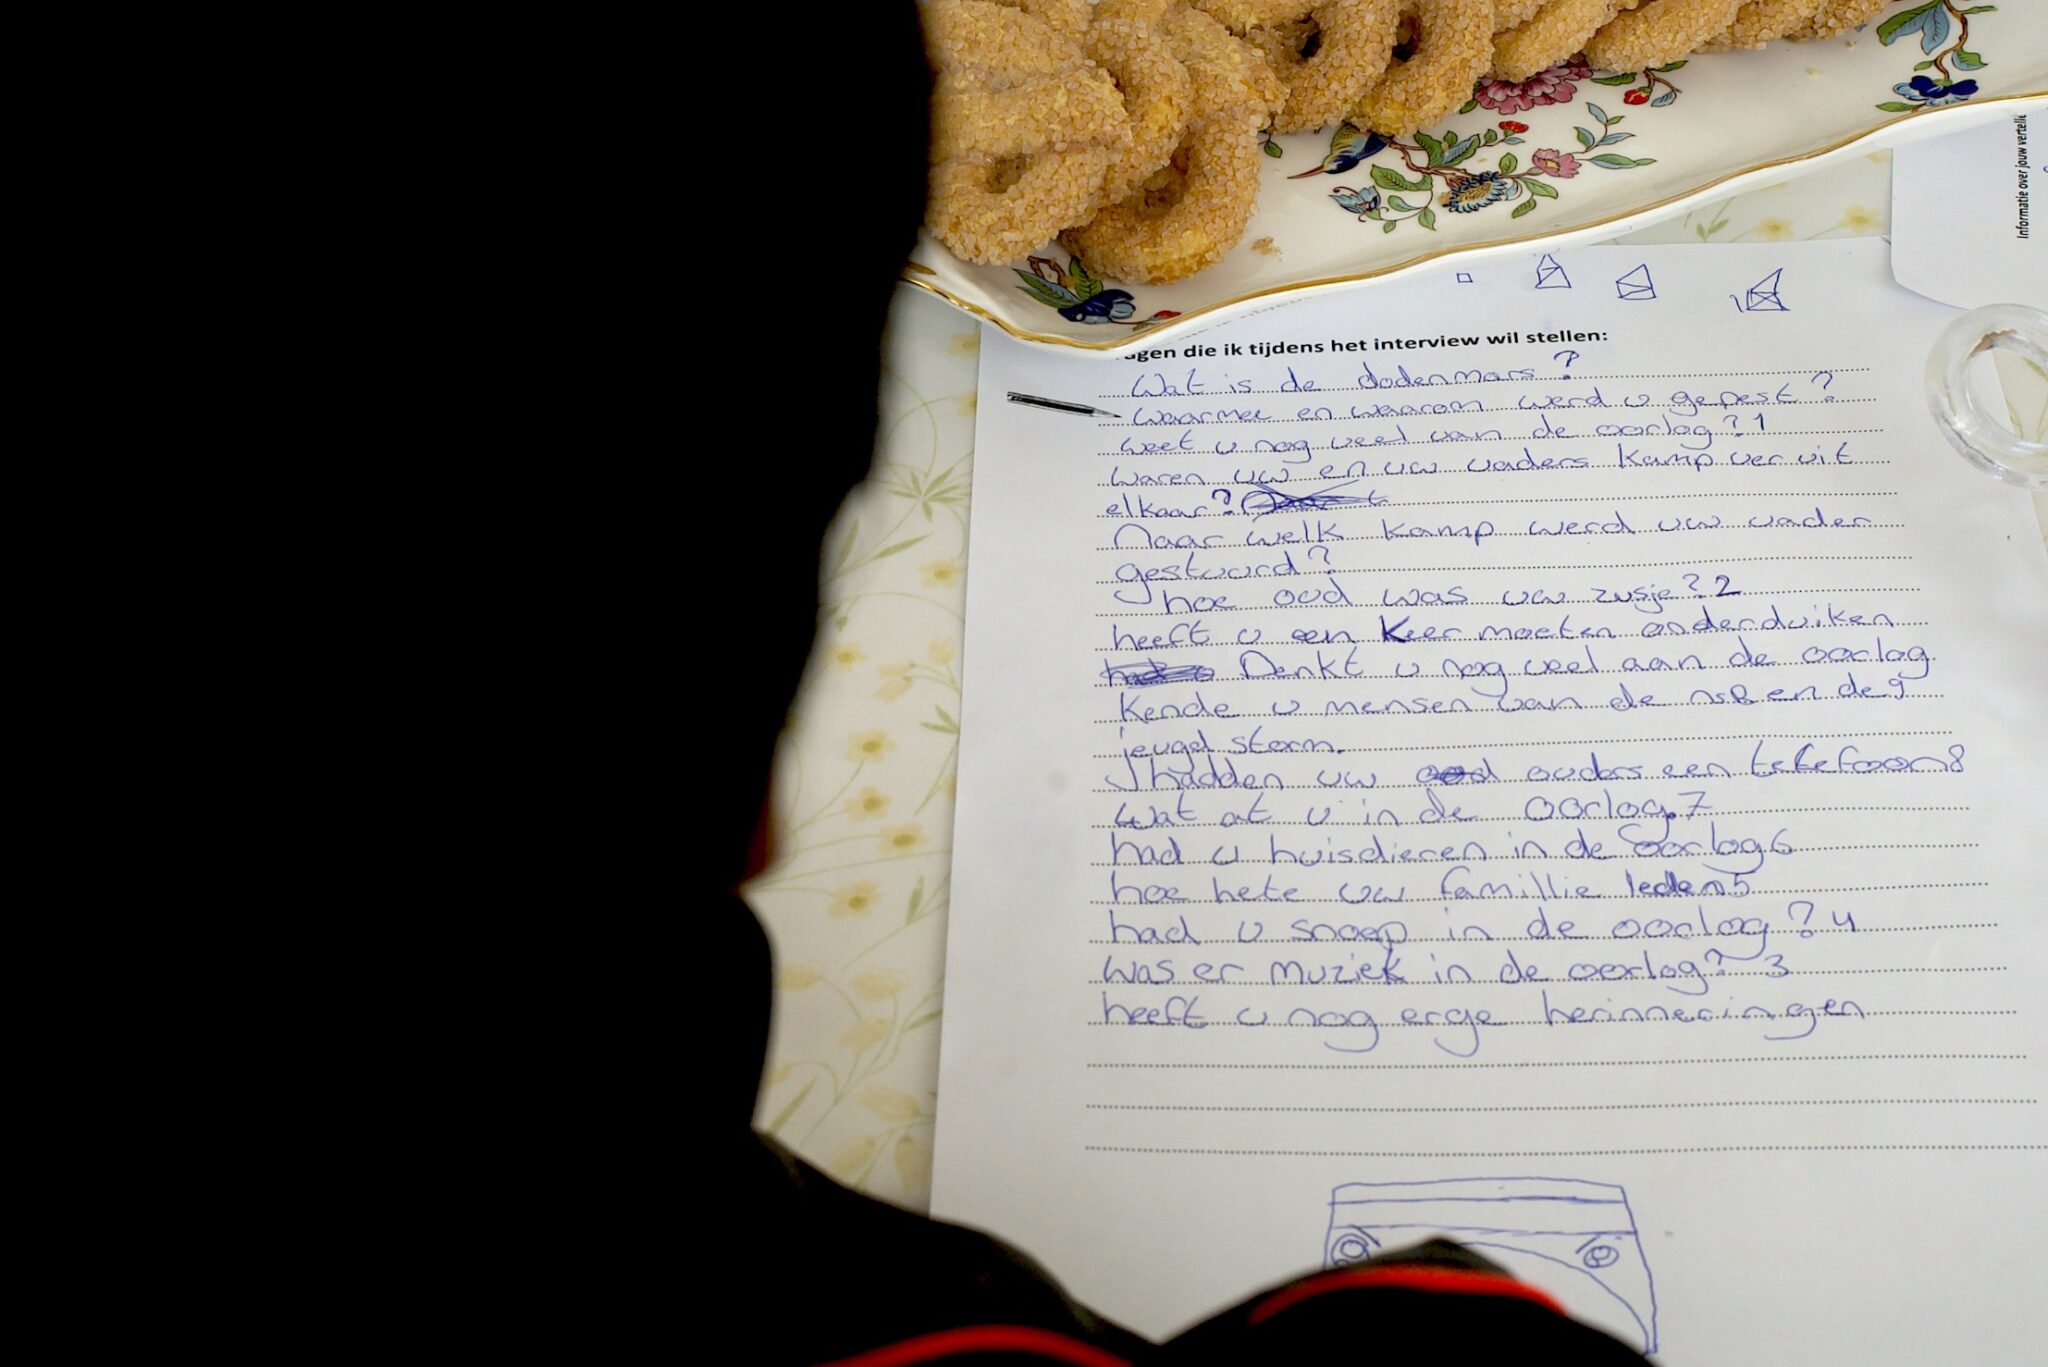 Informatie over jouw vertell
agen die ik tijdens het interview wil stellen:
Wat is de dodenmars?
waarmee en waarom werd u gepest?
weet u nog veel van de oorlog? 1
waren uw en uw vaders kamp ver uit
elkaar?
Naar welk kamp werd uw vader
gestuurd?
hoe oud was uw zusje? 2
heeft u een keer moeten onderduiken
Denkt u nog veel aan de oorlog
Kende u mensen van de nsB en de 9
jeugd storm.
hadden uw ouders een telefoon 8
Wat at u in de oorlog. 7
had u huisdieren in de oorlog 6
hoe hete uw famillie leden 5
had u snoep in de oorlog? 4
was er muziek in de oorlog? 3
heeft u nog erge herinneringen